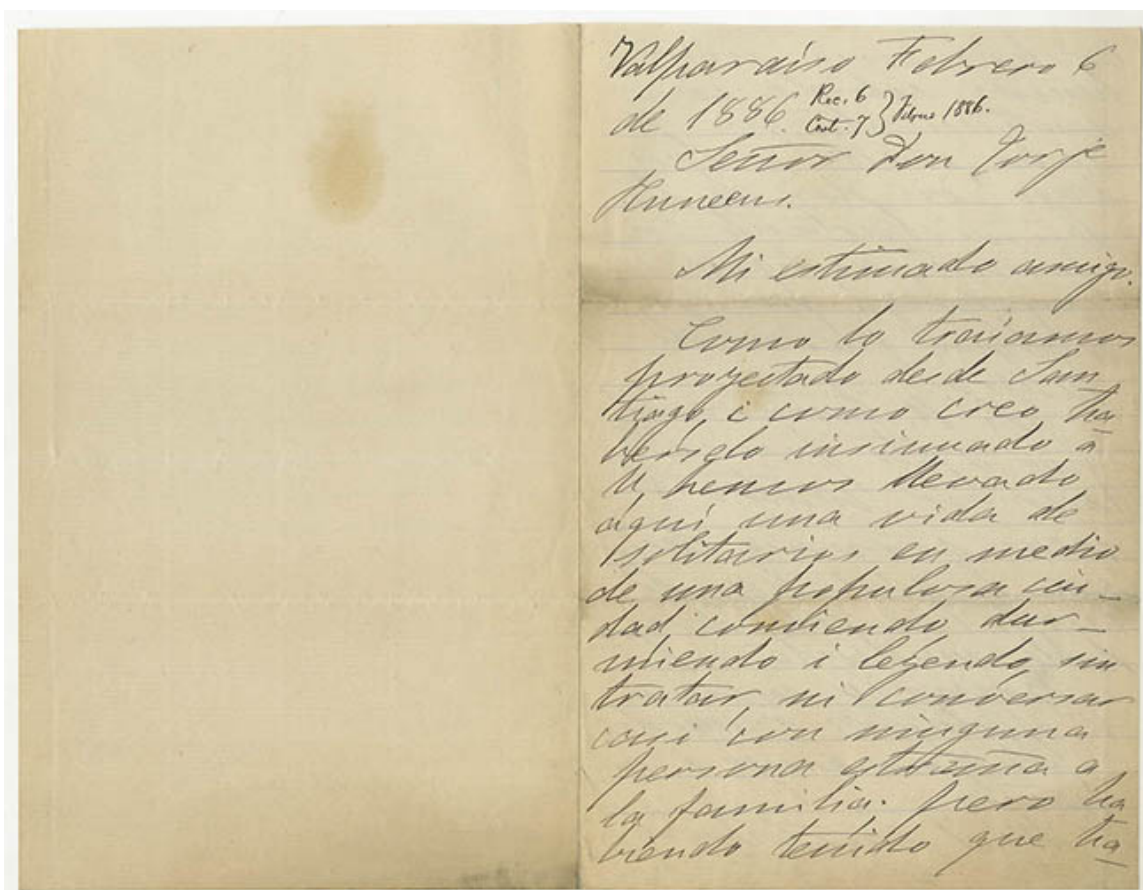 Valparaiso Febrero 6
de 1886. Rec. 6 } Febrero 1886.
Cont. 7
Señor Don Jorje
Huneeus.
Mi estimado amigo.
Como lo traíamos
proyectado desde San
tiago, i como creo ha
berselo insinuado a
U, hemos llevado
aqui una vida de
solitarios en medio
de una populosa ciu-
dad, comiendo dur-
miendo i leyendo, sin
tratar, ni conversar
casi con ninguna
persona estraña a
la familia. pero ha
biendo tenido que ha